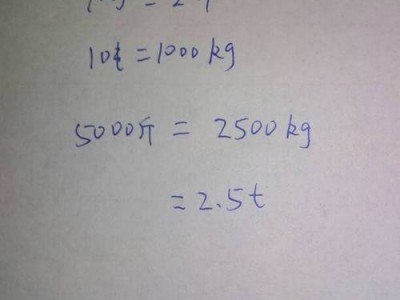 1吨=1000kg
5000斤 = 2500kg
= 2.5t